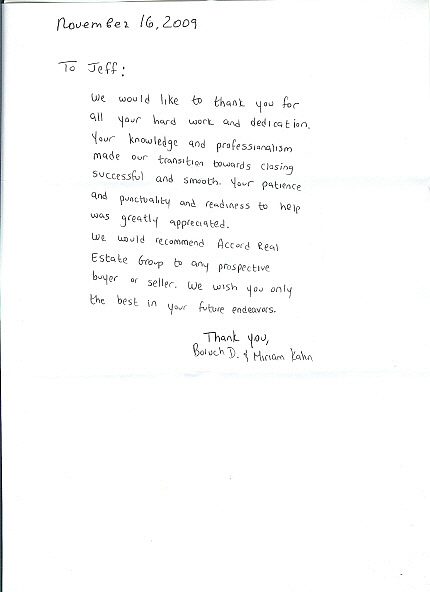 November 16, 2009
To Jeff:
We would like to thank you for
all your hard work and dedication.
Your knowledge and professionalism
made our transition towards closing
successful and smooth. Your patience
and punctuality and readiness to help
was greatly appreciated.
We would recommend Accord Real
Estate Group to any prospective
buyer or seller. We wish you only
the best in your future endeavors.
Thank you,
Boruch D. & Miriam Kahn